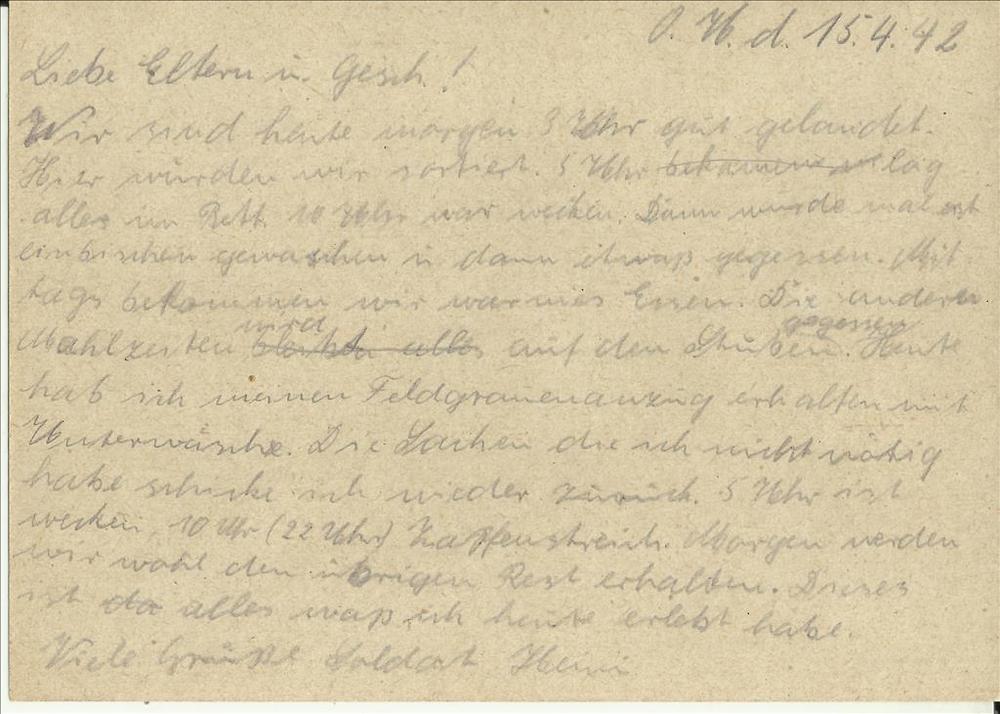 O. U. d. 15.4.42
Liebe Eltern u. Gesch.!
Wir sind heute morgen 3 Uhr gut gelandet.
Hier wurden wir sortiert. 5 Uhr bekommen lag
alles im Bett. 10 Uhr war wecken. Dann wurde mal erst
einbischen gewaschen u dann etwaß gegessen. Mit-
tags bekommen wir warmes Essen. Die anderen
Mahlzeiten wird alles auf den Stuben gegessen. Heute
hab ich meinen Feldgrauenanzug erhalten mit
Unterwäsche. Die Sachen die ich nicht nötig
habe schicke ich wieder zurück. 5 Uhr ist
wecken, 10 Uhr (22 Uhr) Zapfenstreich. Morgen werden
wir wohl den übrigen Rest erhalten. Dieses
ist da alles waß ich heute erlebt habe.
Viele Grüße Soldat Heini